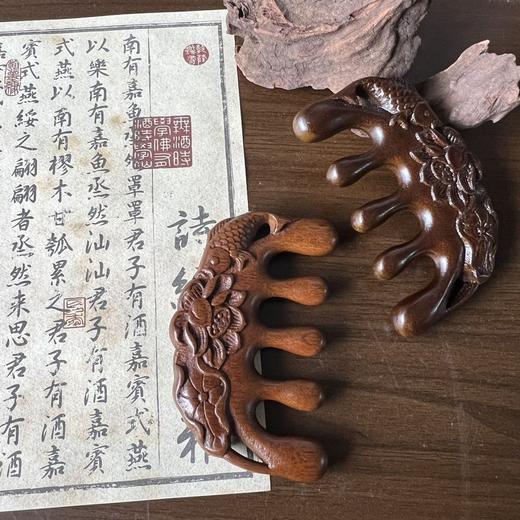 詩
南有嘉魚烝然罩罩君子有酒嘉賓式燕
以樂南有嘉魚烝然汕汕君子有酒嘉賓
式燕以南有樛木甘瓠累之君子有酒嘉
賓式燕綏之翩翩者烝然来思君子有酒